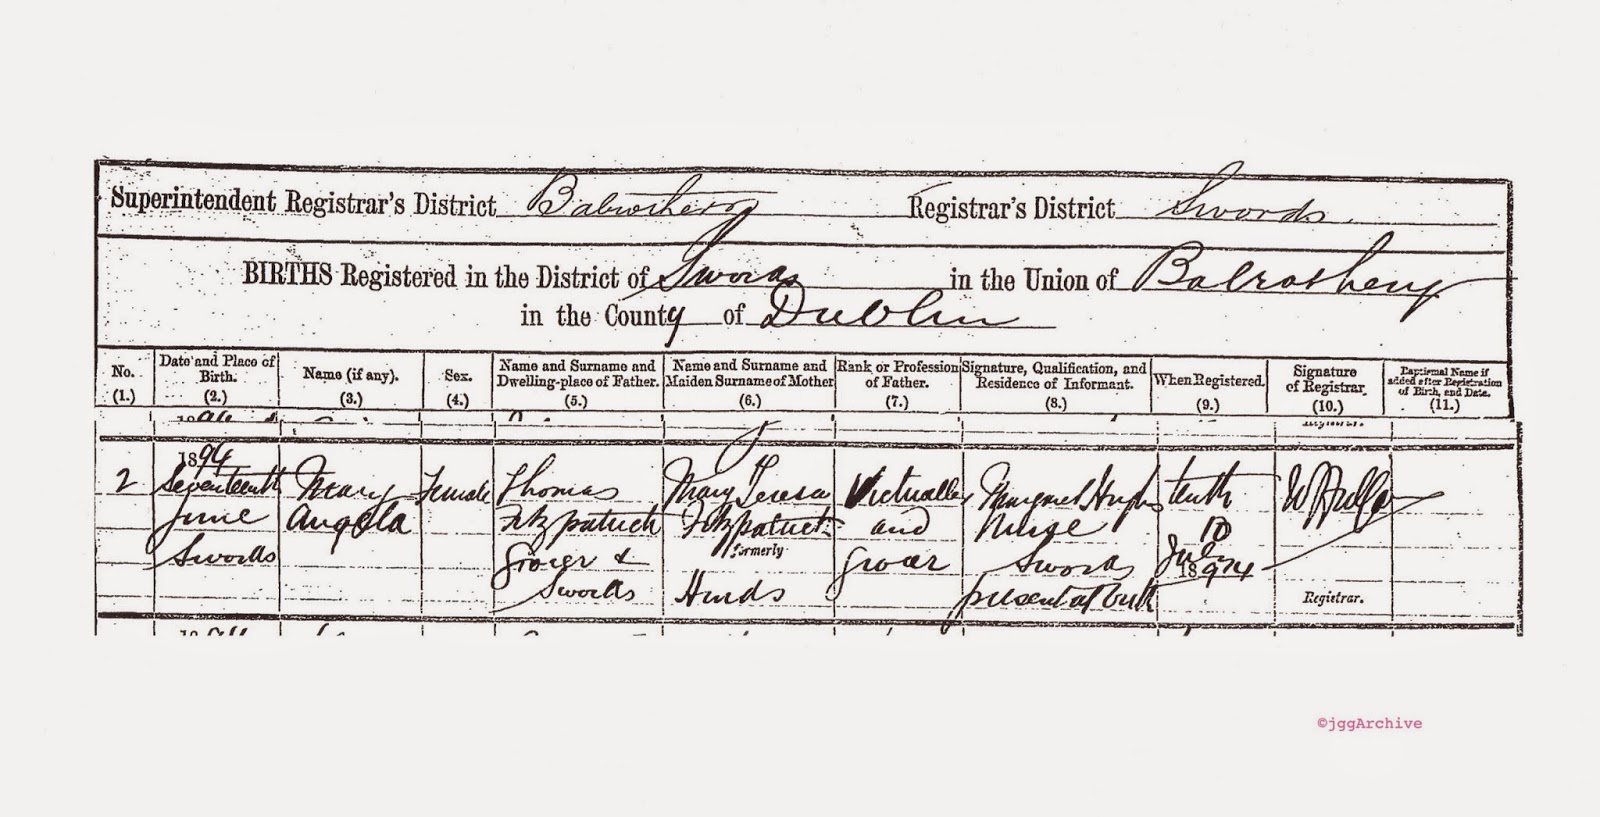 Superintendent Registrar's District Balrothery Registrar's District Swords
BIRTHS Registered in the District of Swords in the Union of Balrothery
in the County of Dublin
No. (1.)
Date and Place of Birth. (2.)
Name (if any). (3.)
Sex. (4.)
Name and Surname and Dwelling-place of Father. (5.)
Name and Surname and Maiden Surname of Mother (6.)
Rank or Profession of Father. (7.)
Signature, Qualification, and Residence of Informant. (8.)
When Registered. (9.)
Signature of Registrar. (10.)
Baptismal Name if added after Registration of Birth, and Date. (11.)
2
1894
Seventeenth
June
Swords
Mary
Angela
Female
Thomas
Fitzpatrick
Grocer &
Swords
Mary Teresa
Fitzpatrick
formerly
Hinds
Victualler
and
Grocer
Margaret
Nurse
Swords
present at birth
tenth
10
July
1894
Registrar.
©jggArchive